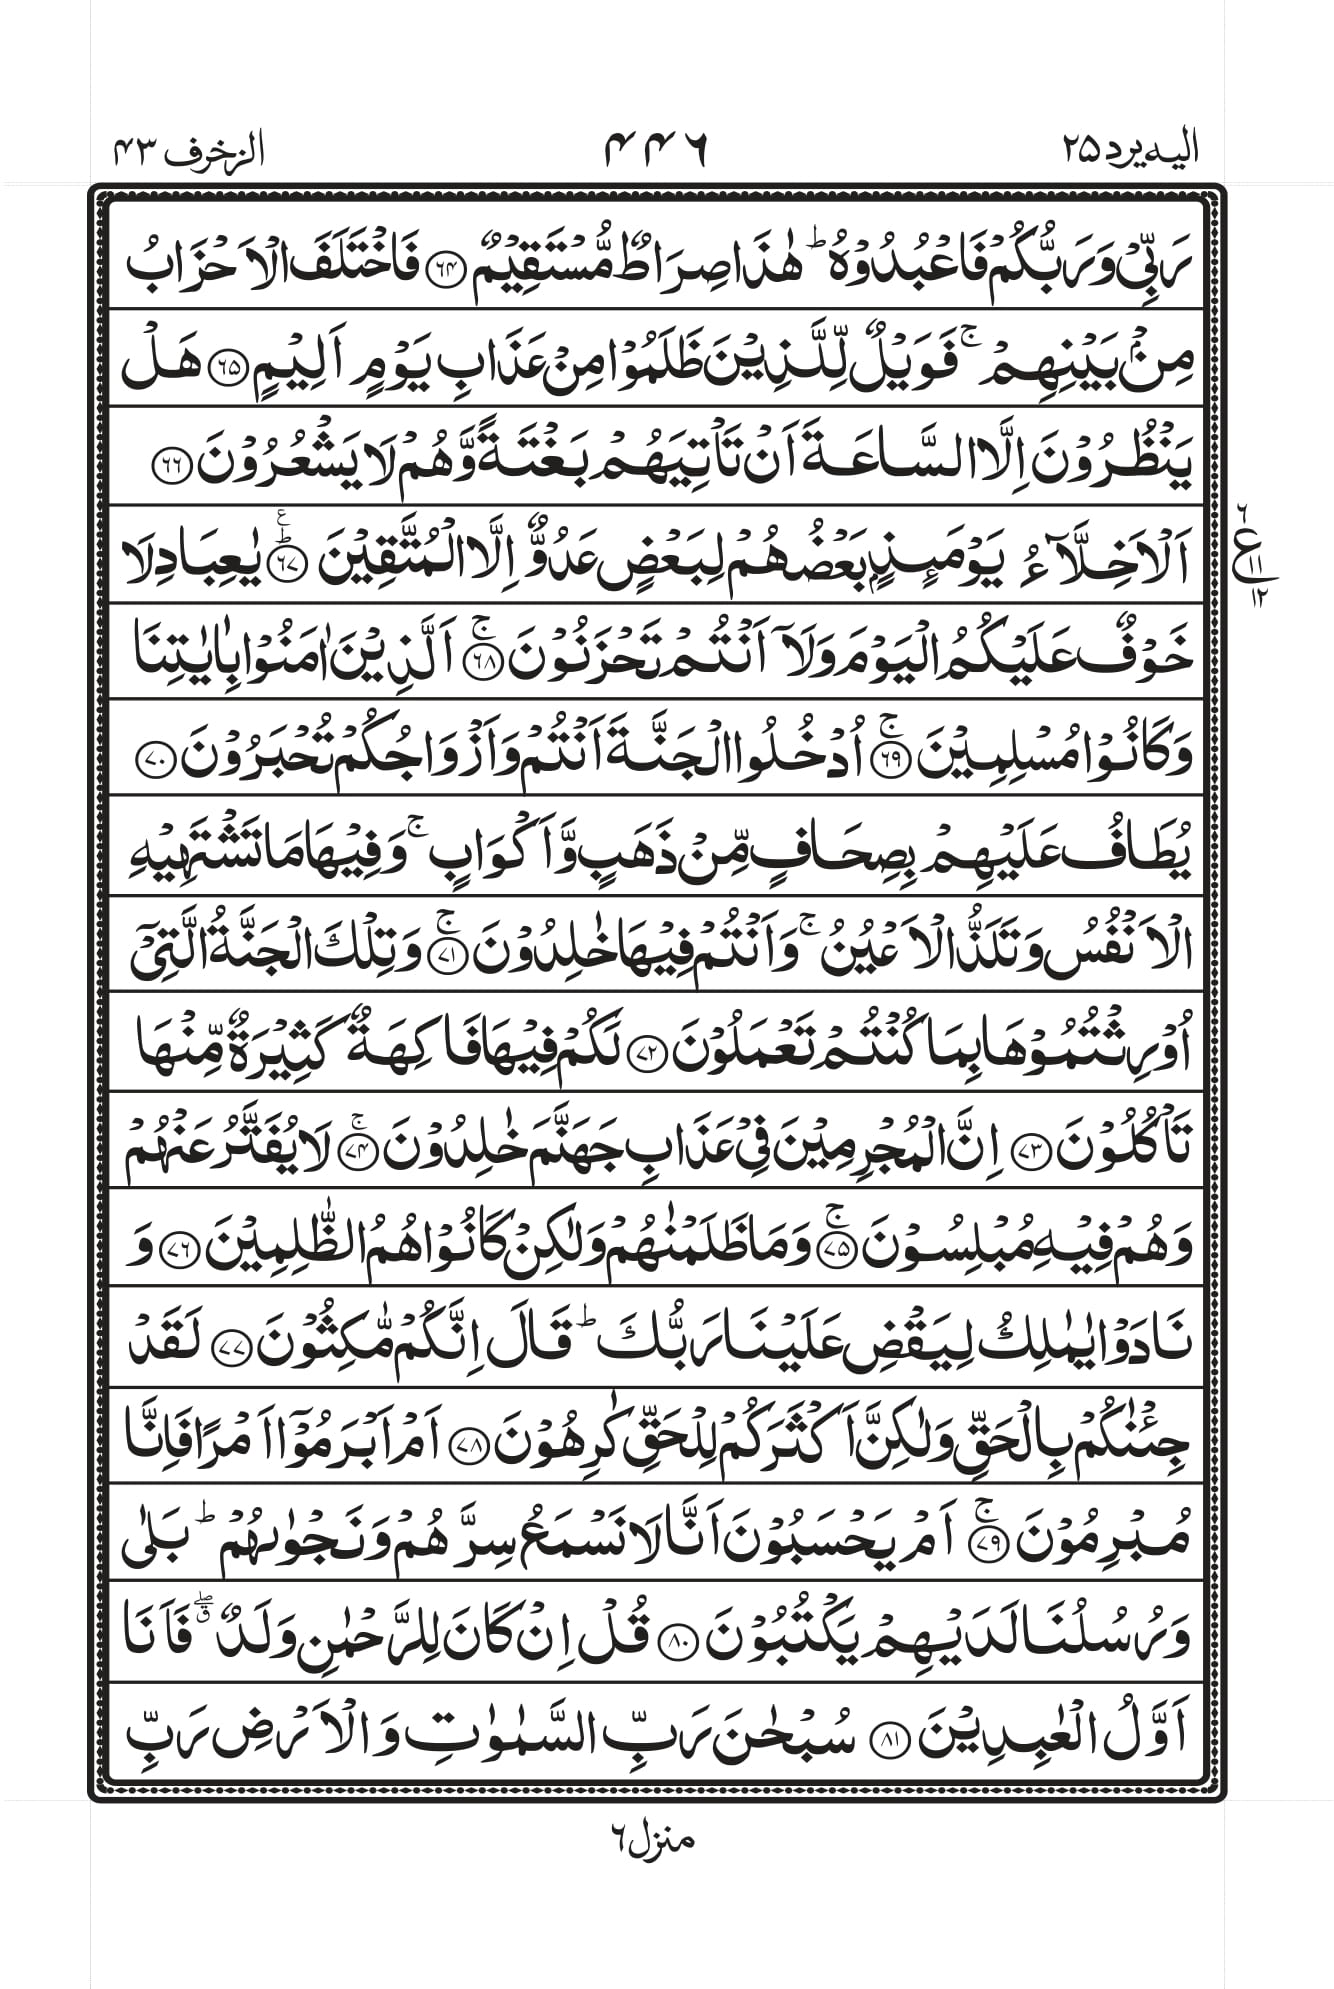 اليه يرد ٢٥
٤٤٦
الزخرف ٤٣
رَبِّيْ وَرَبُّكُمْ فَاعْبُدُوْهُ ؕ هٰذَا صِرَاطٌ مُّسْتَقِيْمٌ ﴿۶۴﴾ فَاخْتَلَفَ الْاَحْزَابُ
مِنْۢ بَيْنِهِمْ ۚ فَوَيْلٌ لِّلَّذِيْنَ ظَلَمُوْا مِنْ عَذَابِ يَوْمٍ اَلِيْمٍ ﴿۶۵﴾ هَلْ
يَنْظُرُوْنَ اِلَّا السَّاعَةَ اَنْ تَاْتِيَهُمْ بَغْتَةً وَّهُمْ لَا يَشْعُرُوْنَ ﴿۶۶﴾
اَلْاَخِلَّآءُ يَوْمَئِذٍۭ بَعْضُهُمْ لِبَعْضٍ عَدُوٌّ اِلَّا الْمُتَّقِيْنَ ﴿۶۷﴾ؕع يٰعِبَادِ لَا
٦
ع
١١
١٢
خَوْفٌ عَلَيْكُمُ الْيَوْمَ وَلَآ اَنْتُمْ تَحْزَنُوْنَ ﴿۶۸﴾ۚ اَلَّذِيْنَ اٰمَنُوْا بِاٰيٰتِنَا
وَكَانُوْا مُسْلِمِيْنَ ﴿۶۹﴾ۚ اُدْخُلُوا الْجَنَّةَ اَنْتُمْ وَاَزْوَاجُكُمْ تُحْبَرُوْنَ ﴿۷۰﴾
يُطَافُ عَلَيْهِمْ بِصِحَافٍ مِّنْ ذَهَبٍ وَّاَكْوَابٍ ۚ وَفِيْهَا مَا تَشْتَهِيْهِ
الْاَنْفُسُ وَتَلَذُّ الْاَعْيُنُ ۚ وَاَنْتُمْ فِيْهَا خٰلِدُوْنَ ﴿۷۱﴾ۚ وَتِلْكَ الْجَنَّةُ الَّتِيْۤ
اُوْرِثْتُمُوْهَا بِمَا كُنْتُمْ تَعْمَلُوْنَ ﴿۷۲﴾ لَكُمْ فِيْهَا فَاكِهَةٌ كَثِيْرَةٌ مِّنْهَا
تَاْكُلُوْنَ ﴿۷۳﴾ اِنَّ الْمُجْرِمِيْنَ فِيْ عَذَابِ جَهَنَّمَ خٰلِدُوْنَ ﴿۷۴﴾ۚ لَا يُفَتَّرُ عَنْهُمْ
وَهُمْ فِيْهِ مُبْلِسُوْنَ ﴿۷۵﴾ۚ وَمَا ظَلَمْنٰهُمْ وَلٰكِنْ كَانُوْا هُمُ الظّٰلِمِيْنَ ﴿۷۶﴾ وَ
نَادَوْا يٰمٰلِكُ لِيَقْضِ عَلَيْنَا رَبُّكَ ؕ قَالَ اِنَّكُمْ مّٰكِثُوْنَ ﴿۷۷﴾ لَقَدْ
جِئْنٰكُمْ بِالْحَقِّ وَلٰكِنَّ اَكْثَرَكُمْ لِلْحَقِّ كٰرِهُوْنَ ﴿۷۸﴾ اَمْ اَبْرَمُوْۤا اَمْرًا فَاِنَّا
مُبْرِمُوْنَ ﴿۷۹﴾ۚ اَمْ يَحْسَبُوْنَ اَنَّا لَا نَسْمَعُ سِرَّهُمْ وَنَجْوٰىهُمْ ؕ بَلٰى
وَرُسُلُنَا لَدَيْهِمْ يَكْتُبُوْنَ ﴿۸۰﴾ قُلْ اِنْ كَانَ لِلرَّحْمٰنِ وَلَدٌ ۖق فَاَنَا
اَوَّلُ الْعٰبِدِيْنَ ﴿۸۱﴾ سُبْحٰنَ رَبِّ السَّمٰوٰتِ وَالْاَرْضِ رَبِّ
منزل ٦